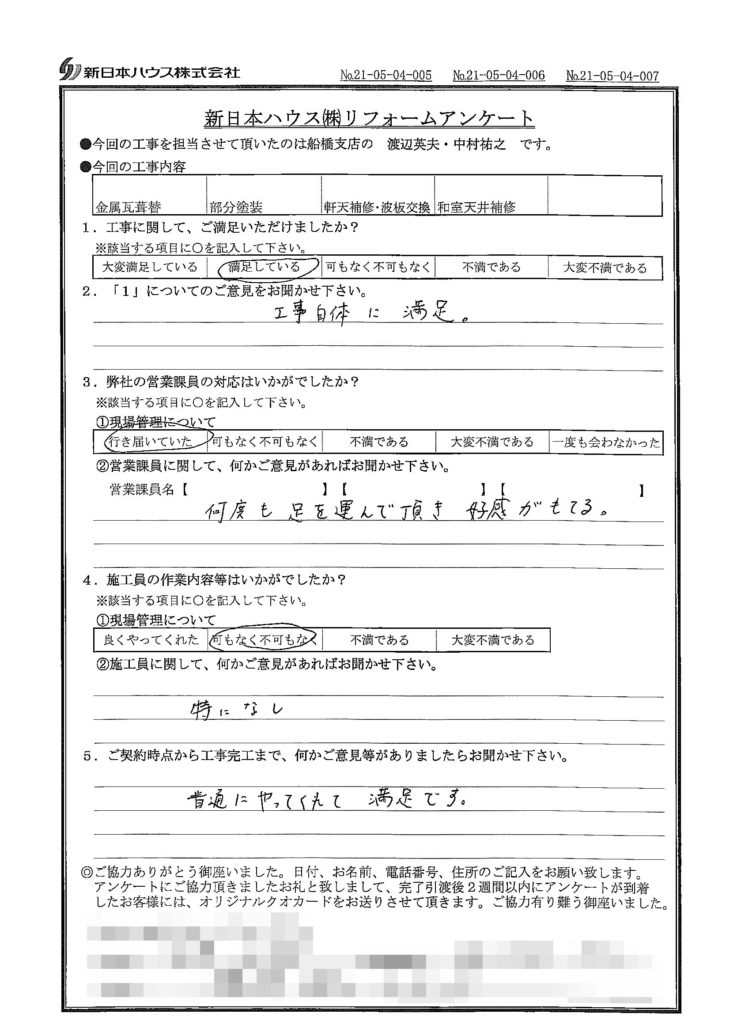 新日本ハウス株式会社 No.21-05-04-005 No.21-05-04-006 No.21-05-04-007
新日本ハウス㈱リフォームアンケート
●今回の工事を担当させて頂いたのは船橋支店の 渡辺英夫・中村祐之 です。
●今回の工事内容
金属瓦葺替 部分塗装 軒天補修・波板交換 和室天井補修
1．工事に関して、ご満足いただけましたか？
※該当する項目に○を記入して下さい。
大変満足している 満足している 可もなく不可もなく 不満である 大変不満である
2．「1」についてのご意見をお聞かせ下さい。
工事自体に 満足。
3．弊社の営業課員の対応はいかがでしたか？
※該当する項目に○を記入して下さい。
①現場管理について
行き届いていた 可もなく不可もなく 不満である 大変不満である 一度も会わなかった
②営業課員に関して、何かご意見があればお聞かせ下さい。
営業課員名【 】【 】【 】
何度も 足を運んで頂き 好感がもてる。
4．施工員の作業内容等はいかがでしたか？
※該当する項目に○を記入して下さい。
①現場管理について
良くやってくれた 可もなく不可もなく 不満である 大変不満である
②施工員に関して、何かご意見があればお聞かせ下さい。
特になし
5．ご契約時点から工事完工まで、何かご意見等がありましたらお聞かせ下さい。
普通にやってくれて 満足です。
◎ご協力ありがとう御座いました。日付、お名前、電話番号、住所のご記入をお願い致します。
アンケートにご協力頂きましたお礼と致しまして、完了引渡後２週間以内にアンケートが到着
したお客様には、オリジナルクオカードをお送りさせて頂きます。ご協力有り難う御座いました。